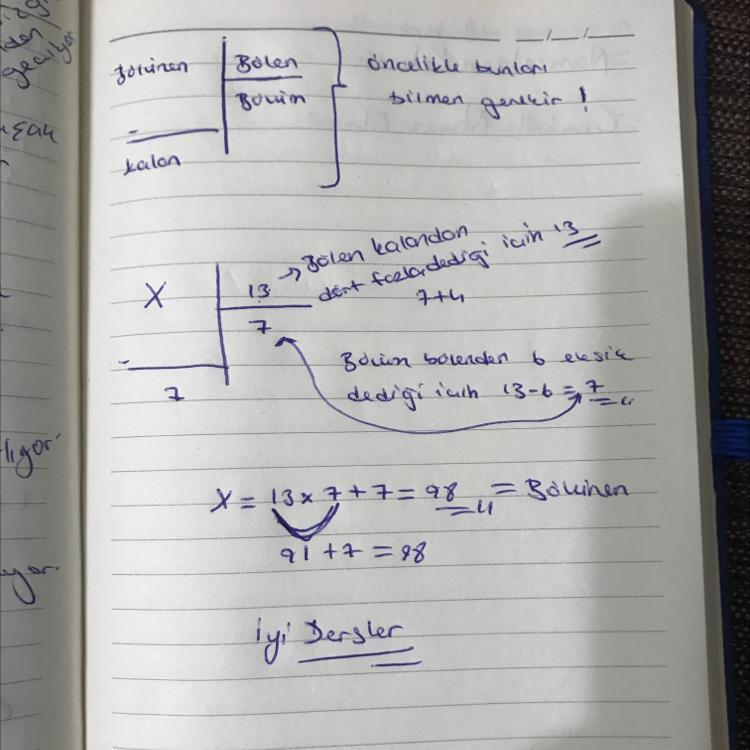 Bölünen | Bölen
Bölüm
-
kalan
öncelikle bunları
bilmen gerekir !
X | 13
7
-
7
→ Bölen kalandan
dört fazla dediği için 13
7+4
Bölüm bölenden 6 eksik
dediği için 13-6=7
X = 13x7+7=98 = Bölünen
91+7=98
İyi Dersler